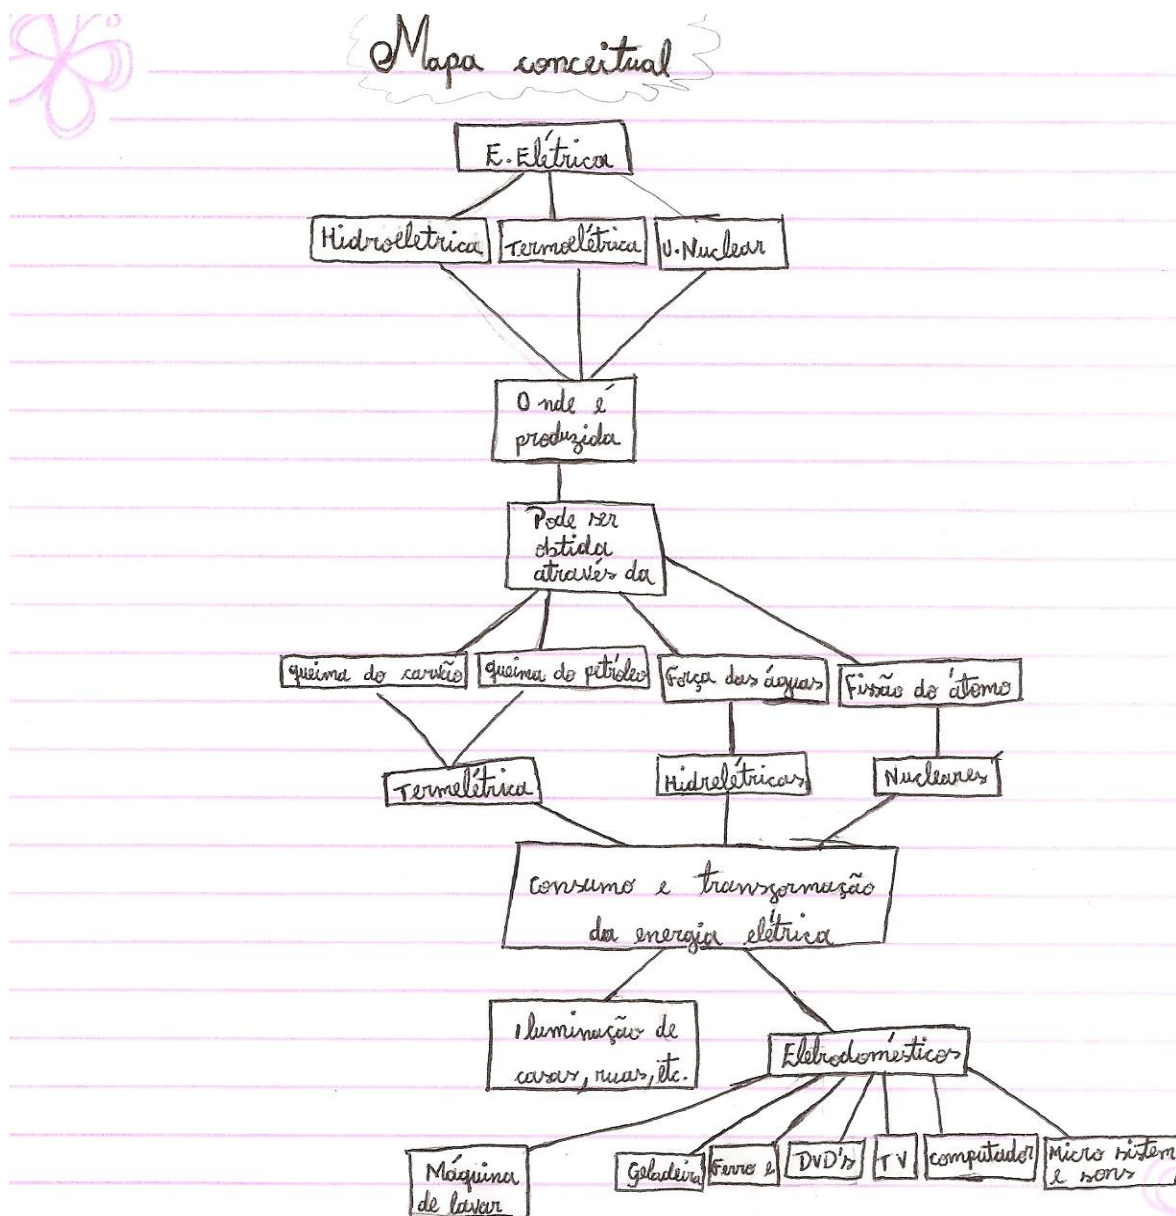 Mapa conceitual
E. Elétrica
Hidroeletrica
Termoelétrica
U. Nuclear
Onde é
produzida
Pode ser
obtida
através da
queima do carvão
queima do petróleo
Força das águas
Fissão do átomo
Termelétrica
Hidrelétricas
Nucleares
consumo e transformação
da energia elétrica
Iluminação de
casas, ruas, etc.
Eletrodomésticos
Máquina
de lavar
Geladeira
Ferro e
DVD's
TV
computador
Micro sistem
e sons